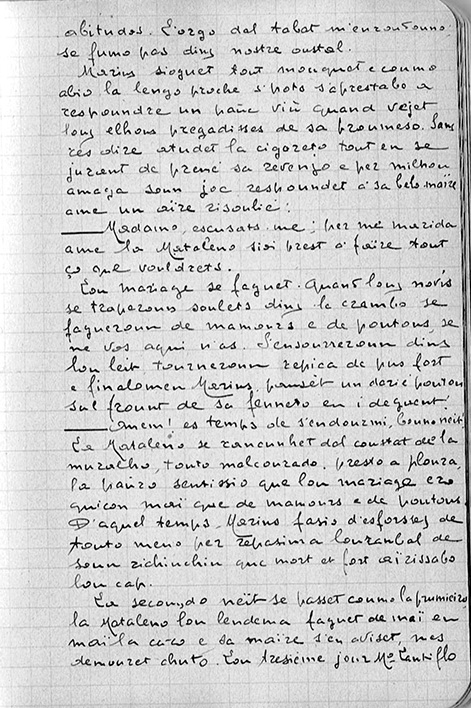 abitudos. L'orgo dal tabat m'enroutouno.
se fumo pas dins nostre oustal.
Marius sioguet tout mouquet e coumo
abio la lengo proche s'pots s'aprestabo a
respoundre un pauc viu quand vejet
lous elhous pregadisses de sa proumeso. Sans
res dire atudet la cigareto tout en se
jurent de prene sa revenjo e per milhou
amaga soun joc respoundet a sa belo-maire
ame un aire risoulié :
— Madamo, escusats-me ; per me marida
ame la Mataleno sioi prest a faire tout
ço que vouldrets.
Lou mariage se faguet. Quant lous novis
se trapèroun soulets dins la crambo se
faguèroun de mamours e de poutous, se
ne vos aqui n'as. S'ensourrèroun dins
lou leit, tournèroun repica de pus fort
e finalomen Marius, pausèt un darié poutou
sul frount de sa fenneto en i deguent :
— Anem ! es temps de s'endourmi, bouno neit.
La Mataleno se rancunhet dal coustat de la
muralho, touto malcourado, presto a ploura,
la pauro sentissio que lou mariage ero
quicon mai que de mamours e de poutous.
D'aquel temps, Marius fasio d'esforses de
touto meno per repasima lou ranbal de
soun richinchin que mort et fort aïrissabo
lou cap.
La secoundo neit se passet coumo la prumieiro
la Mataleno lou lendema faguet de mai en
mai la caro e sa maire s'en aviset, mes
demouret chuto. Lou tresieme jour Mo Cantiflo